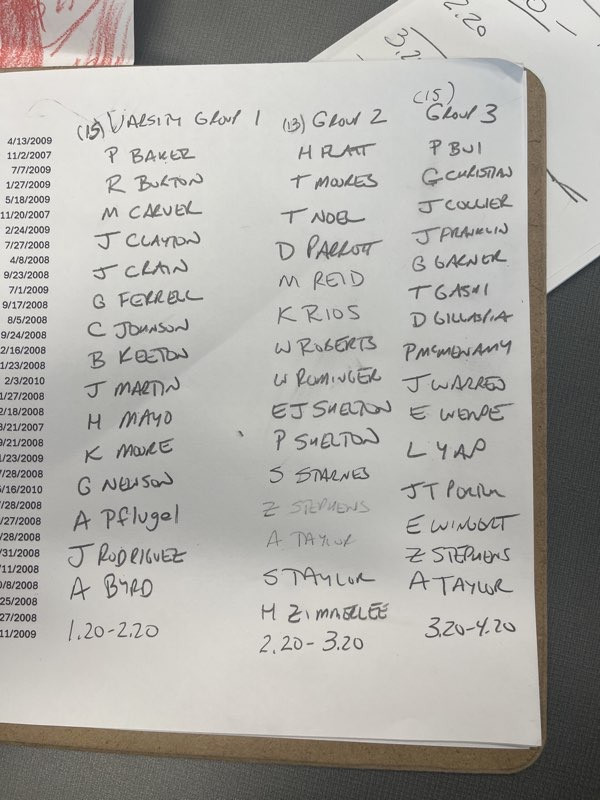 2.20
3.2
(15) VARSITY GROUP 1
P BAKER
R BURTON
M CARVER
J CLAYTON
J CRAIN
G FERRELL
C JOHNSON
B KEETON
J MARTIN
H MAYO
K MOORE
G NEWSON
A Pflugel
J RODRIGUEZ
A BYRD
1.20-2.20
(13) GROUP 2
H PLATT
T MOORES
T NOEL
D PARROTT
M REID
K RIOS
W ROBERTS
W ROMINGER
EJ SHELTON
P SHELTON
S STARNES
Z STEPHENS
A TAYLOR
S TAYLOR
H ZIMMERLEE
2.20-3.20
(15)
GROUP 3
P BUI
G CHRISTIAN
J COLLIER
J FRANKLIN
G GARNER
T GASHI
D GILLASPIA
P MCMENAMY
J WARREN
E WENDE
L YAP
JT PORTER
E WINGERT
Z STEPHENS
A TAYLOR
3.20-4.20
4/13/2009
11/2/2007
7/7/2009
1/27/2009
5/18/2009
11/20/2007
2/24/2009
7/27/2008
4/8/2008
9/23/2008
7/1/2009
9/17/2008
8/5/2008
9/24/2008
2/16/2008
1/23/2008
2/3/2010
1/27/2008
2/18/2008
3/21/2007
9/21/2008
1/23/2009
7/28/2008
5/16/2010
7/28/2008
/27/2008
/28/2008
/31/2008
/11/2008
0/8/2008
25/2008
27/2008
11/2009